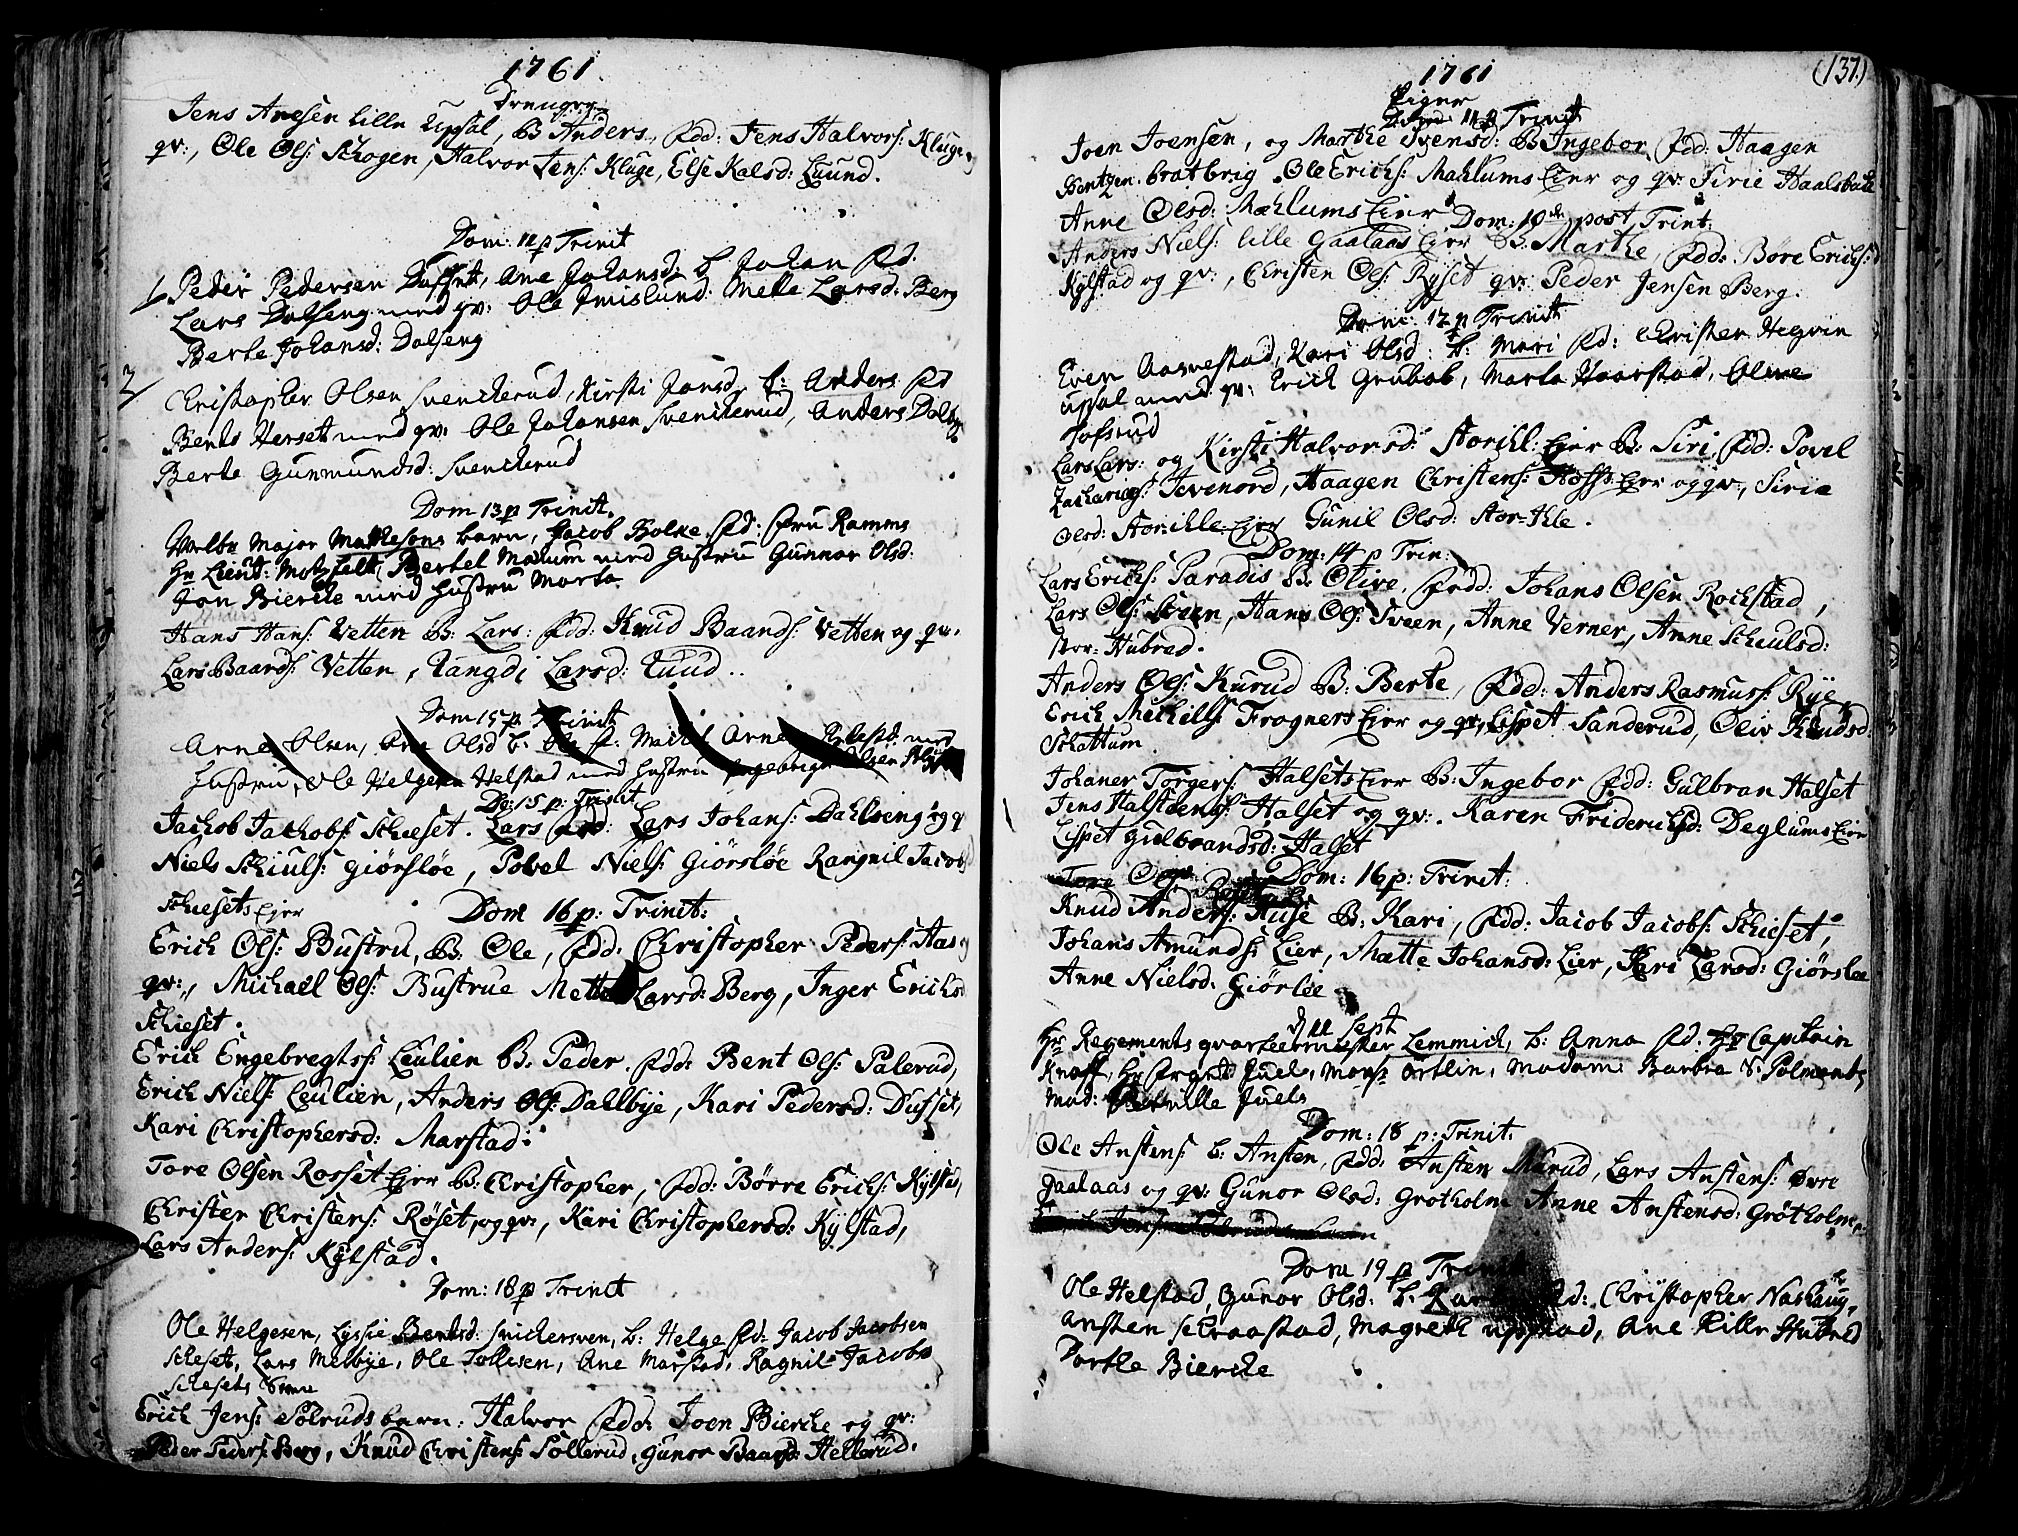 1761
Drenge
Jens Anesen lille Upsal, B: Anders, Fdd: Jens Halvors: Kluge,
qv:, Ole Ols: Schogen, Halvor Jens: Kluge, Else Kalsd: Luund.
Dom: 11 p Trinit
1 Peder Pedersen Dufset, Ane Johansd: b Johan Fd.
Lars Dalseng med qv: Ole Imislund: Mette Larsd: Berg
Berte Johansd: Dalseng
2 Christopher Olsen Svencherud, Kirsti Jonsd b: Anders Fd
Bent Herset med qv: Ole Johansen Svencherud, Anders Dalbye
Berte Gunmundsd: Svencherud
Dom 13 p Trinit.
Major Mathesons barn, Jacob Bolke. Fd: Fru Ramms
Hr Lieut: Motzfelt, Bertel Mælum med hustru Gunnor Olsd:
Jon Biercke med hustru Marta
Hans Hans: Vetten B: Lars: Fdd: Knud Baards: Vetten og qv.
Lars Baards: Vetten, Rangdi Larsd: Ruud..
Dom 15 p Trinit
Arne Olsen, Olsd b. Ole
hustru, Ole Helgesen Helstad med hustru
Do: 15 p: Trinit
Jachob Jachobs: Schieset. Lars Fdd: Lars Johans: Dahlseng og q
Niels Schiuls: Giørsløe, Povel Niels: Giørsløe Rangnil Jacobsd
Schiesets Eier
Dom 16 p: Trinit:
Erich Ols: Bustru, B: Ole, Fdd: Christopher Peders: Aas og
qv:, Michael Ols: Bustrue Mette Larsd: Berg, Inger Erichsd
Schieset.
Erich Engebregts: Leulien B: Peder. Fdd: Bent Ols: Palerud,
Erich Niels: Leulien, Anders Ols: Dallbye, Kari Pedersd: Dufset,
Kari Christophersd: Marstad:
Tore Olsen Rosset Eier B: Christopher, Fdd: Børre Erichs: Kylstad,
Christen Christens: Røset, og qv:, Kari Christophersd: Kylstad,
Lars Anders: Kylstad.
Dom: 18 p Trinit
Ole Helgesen, Lyssie Bentsd: Snickersven, b: Helge Fd: Jacob Jacobsen
Scheset, Lars Melbye, Ole Tollesen, Ane Marstad, Ragnil Jacobsd
Schesets
Erich Jens: Solruds barn: Halvor Fdd: Joen Bierche og qv:
Peder Peders: Berg, Knud Christens: Sollerud, Gunor Baardsd: Hellerud.
(137.)
1761
Piger
11 p Trinit
Joen Joensen, og Marthe Svensd: B Ingebor, Fdd: Haagen
Bentzen bratbrig Ole Erichs: Mæhlums Eier og qv: Sirie Haalsbach
Anne Olsd: Mæhlums Eier
Dom: 10de post Trint:
Anders Niels: lille Gaalaas Eier B: Marthe, Fdd: Børe Erichs:
Kylstad og qv:, Christen Ols: Ryset qv: Peder Jensen Berg.
Dom: 12 p Trinit
Even Aasvestad, Kari Olsd: b: Mari Fd: Christen Hegvin
Upsal med qv: Erich Grubob, Marta Haarstad, Oline
Hofsrud
Lars Lars: og Kirsti Halvorsd: Storihl: Eier B: Siri, Fdd: Povel
Zacharias: Tevenord, Haagen Christens: Hoffs Eier og qv:, Sirie
Olsd: Storihle Eier Gunil Olsd: Stor-Ihle.
Dom: 14 p Trin:
Lars Erichs: Paradis B: Olive. Fdd: Johans Olsen Rochstad,
Lars Ols: Sveen, Hans Ols: Sveen, Anne Verner, Anne Schiulsd:
Stor-Hubred.
Anders Ols: Kurud B: Berte, Fdd: Anders Rasmus: Rye
Erich Michells: Frogners Eier og qv, Lispet Sanderud, Oliv Knudsd
Schattum
Johaner Torgers: Halsets Eier B: Ingebor Fdd: Gulbran Halset
Jens Halstens: Halset og qv:. Karen Friderichsd: Deglums Eier
Lispet Gulbrandsd: Halset
Dom: 16 p: Trinit:
Knud Anders: Huse B: Kari, Fdd: Jacob Jacobs: Schieset,
Johans Amunds: Lier, Mætte Johansd: Lier, Kari Larsd: Giørslee
Anne Nielsd: Giørlee
d 11 Sept
Hr Regements qvarteermester Lemmich, b: Anna Fd. Hr Capitain
Knoff, Hr Juel, Mons: Ortlin, Madam: Barbra S: Polmente,
Mad: Juels
Dom: 18 p: Trinit:
Ole Anstens: b: Ansten, Fdd: Ansten Narud, Lars Anstens: Øvre
Gaalaas og qv: Gunor Olsd: Grøtholm Anne Anstensd: Grøtholm
Dom 19 p Trinit
Ole Helstad, Gunor Olsd: b. Kari Fd: Christopher Nashaug,
Ansten Schraastad, Magreth Uppstad, Ane Lille Hubred
Dorthe Biercke